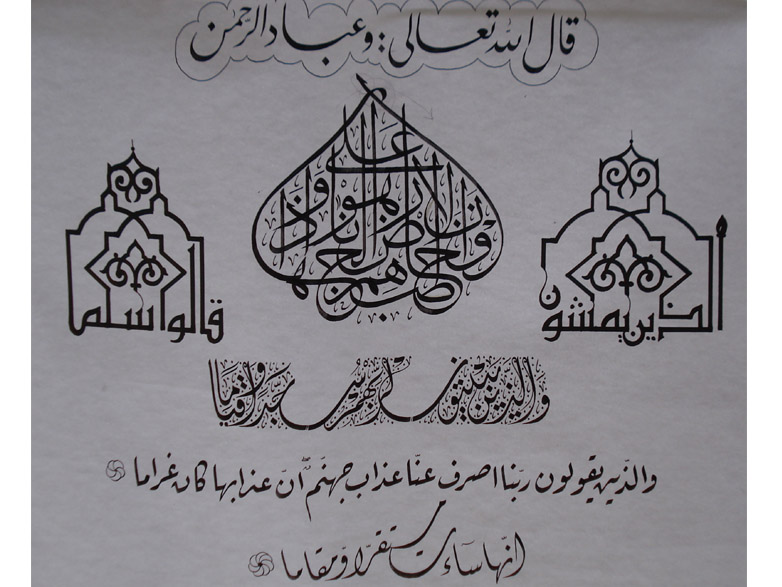 قال الله تعالى: وعباد الرحمن
الذين يمشون
على الارض هونا واذا خاطبهم الجاهلون
قالوا سلما
والذين يبيتون لربهم سجدا وقياما
والذّين يقولون ربّنا اصرف عنّا عذاب جهنّم انّ عذابها كان غراما
انّها ساءت مستقرّا ومقاما